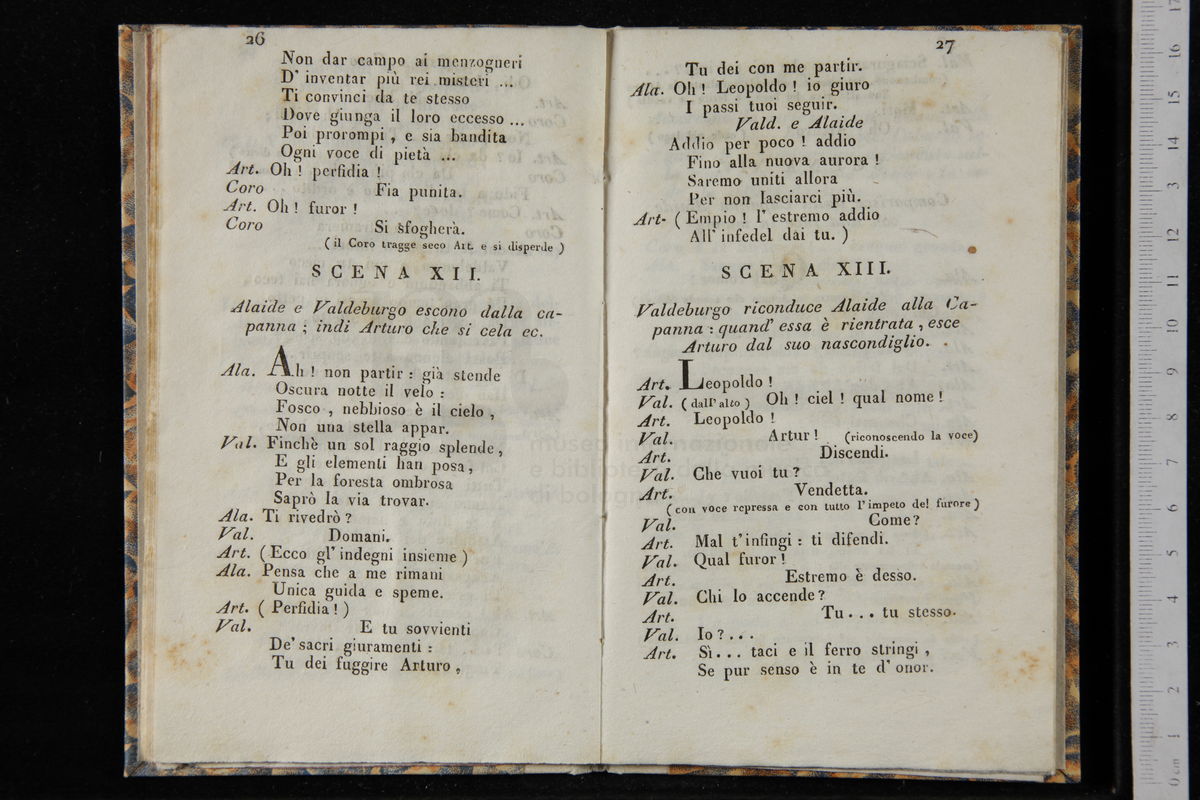 26
Non dar campo ai menzogneri
D' inventar più rei misteri ...
Ti convinci da te stesso
Dove giunga il loro eccesso ...
Poi prorompi , e sia bandita
Ogni voce di pietà ...
Art. Oh ! perfidia !
Coro Fia punita.
Art. Oh ! furor !
Coro Si sfogherà.
( il Coro tragge seco Art. e si disperde )
SCENA XII.
Alaide e Valdeburgo escono dalla ca-
panna ; indi Arturo che si cela ec.
Ala. Ah ! non partir : già stende
Oscura notte il velo :
Fosco , nebbioso è il cielo ,
Non una stella appar.
Val. Finchè un sol raggio splende ,
E gli elementi han posa ,
Per la foresta ombrosa
Saprò la via trovar.
Ala. Ti rivedrò ?
Val. Domani.
Art. ( Ecco gl' indegni insieme )
Ala. Pensa che a me rimani
Unica guida e speme.
Art. ( Perfidia ! )
Val. E tu sovvienti
De' sacri giuramenti :
Tu dei fuggire Arturo ,
27
Tu dei con me partir.
Ala. Oh ! Leopoldo ! io giuro
I passi tuoi seguir.
Vald. e Alaide
Addio per poco ! addio
Fino alla nuova aurora !
Saremo uniti allora
Per non lasciarci più.
Art- ( Empio ! l' estremo addio
All' infedel dai tu. )
SCENA XIII.
Valdeburgo riconduce Alaide alla Ca-
panna : quand' essa è rientrata , esce
Arturo dal suo nascondiglio.
Art. Leopoldo !
Val. ( dall' alto ) Oh ! ciel ! qual nome !
Art. Leopoldo !
Val. Artur ! (riconoscendo la voce)
Art. Discendi.
Val. Che vuoi tu ?
Art. Vendetta.
( con voce repressa e con tutto l' impeto del furore )
Val. Come ?
Art. Mal t' infingi : ti difendi.
Val. Qual furor !
Art. Estremo è desso.
Val. Chi lo accende ?
Art. Tu . . . tu stesso.
Val. Io ? . . .
Art. Sì . . . taci e il ferro stringi ,
Se pur senso è in te d' onor.
museo internazionale
e biblioteca della musica
di bologna
0 cm 1 2 3 4 5 6 7 8 9 10 11 12 13 14 15 16 17